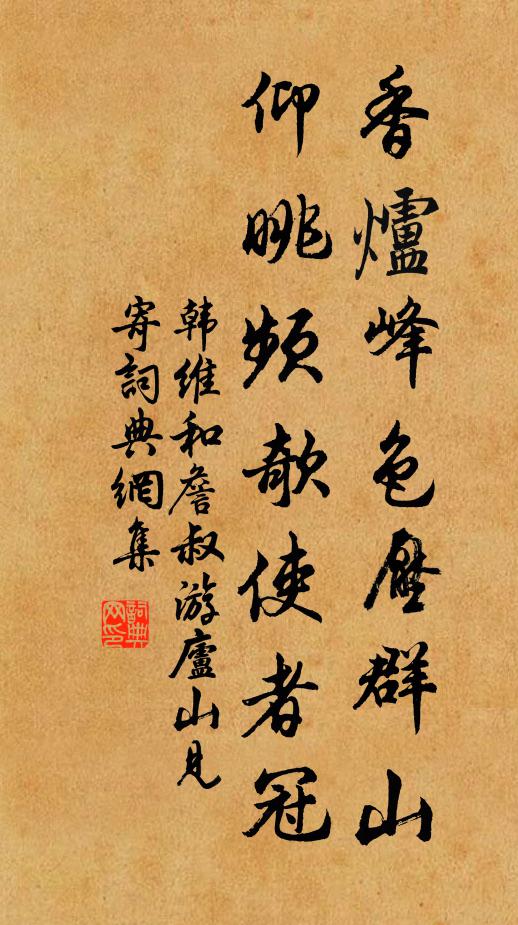 香爐峰色壓群山
仰眺頻欹使者冠
韩維和詹叔游廬山見
寄詞典網集
詞典
网印